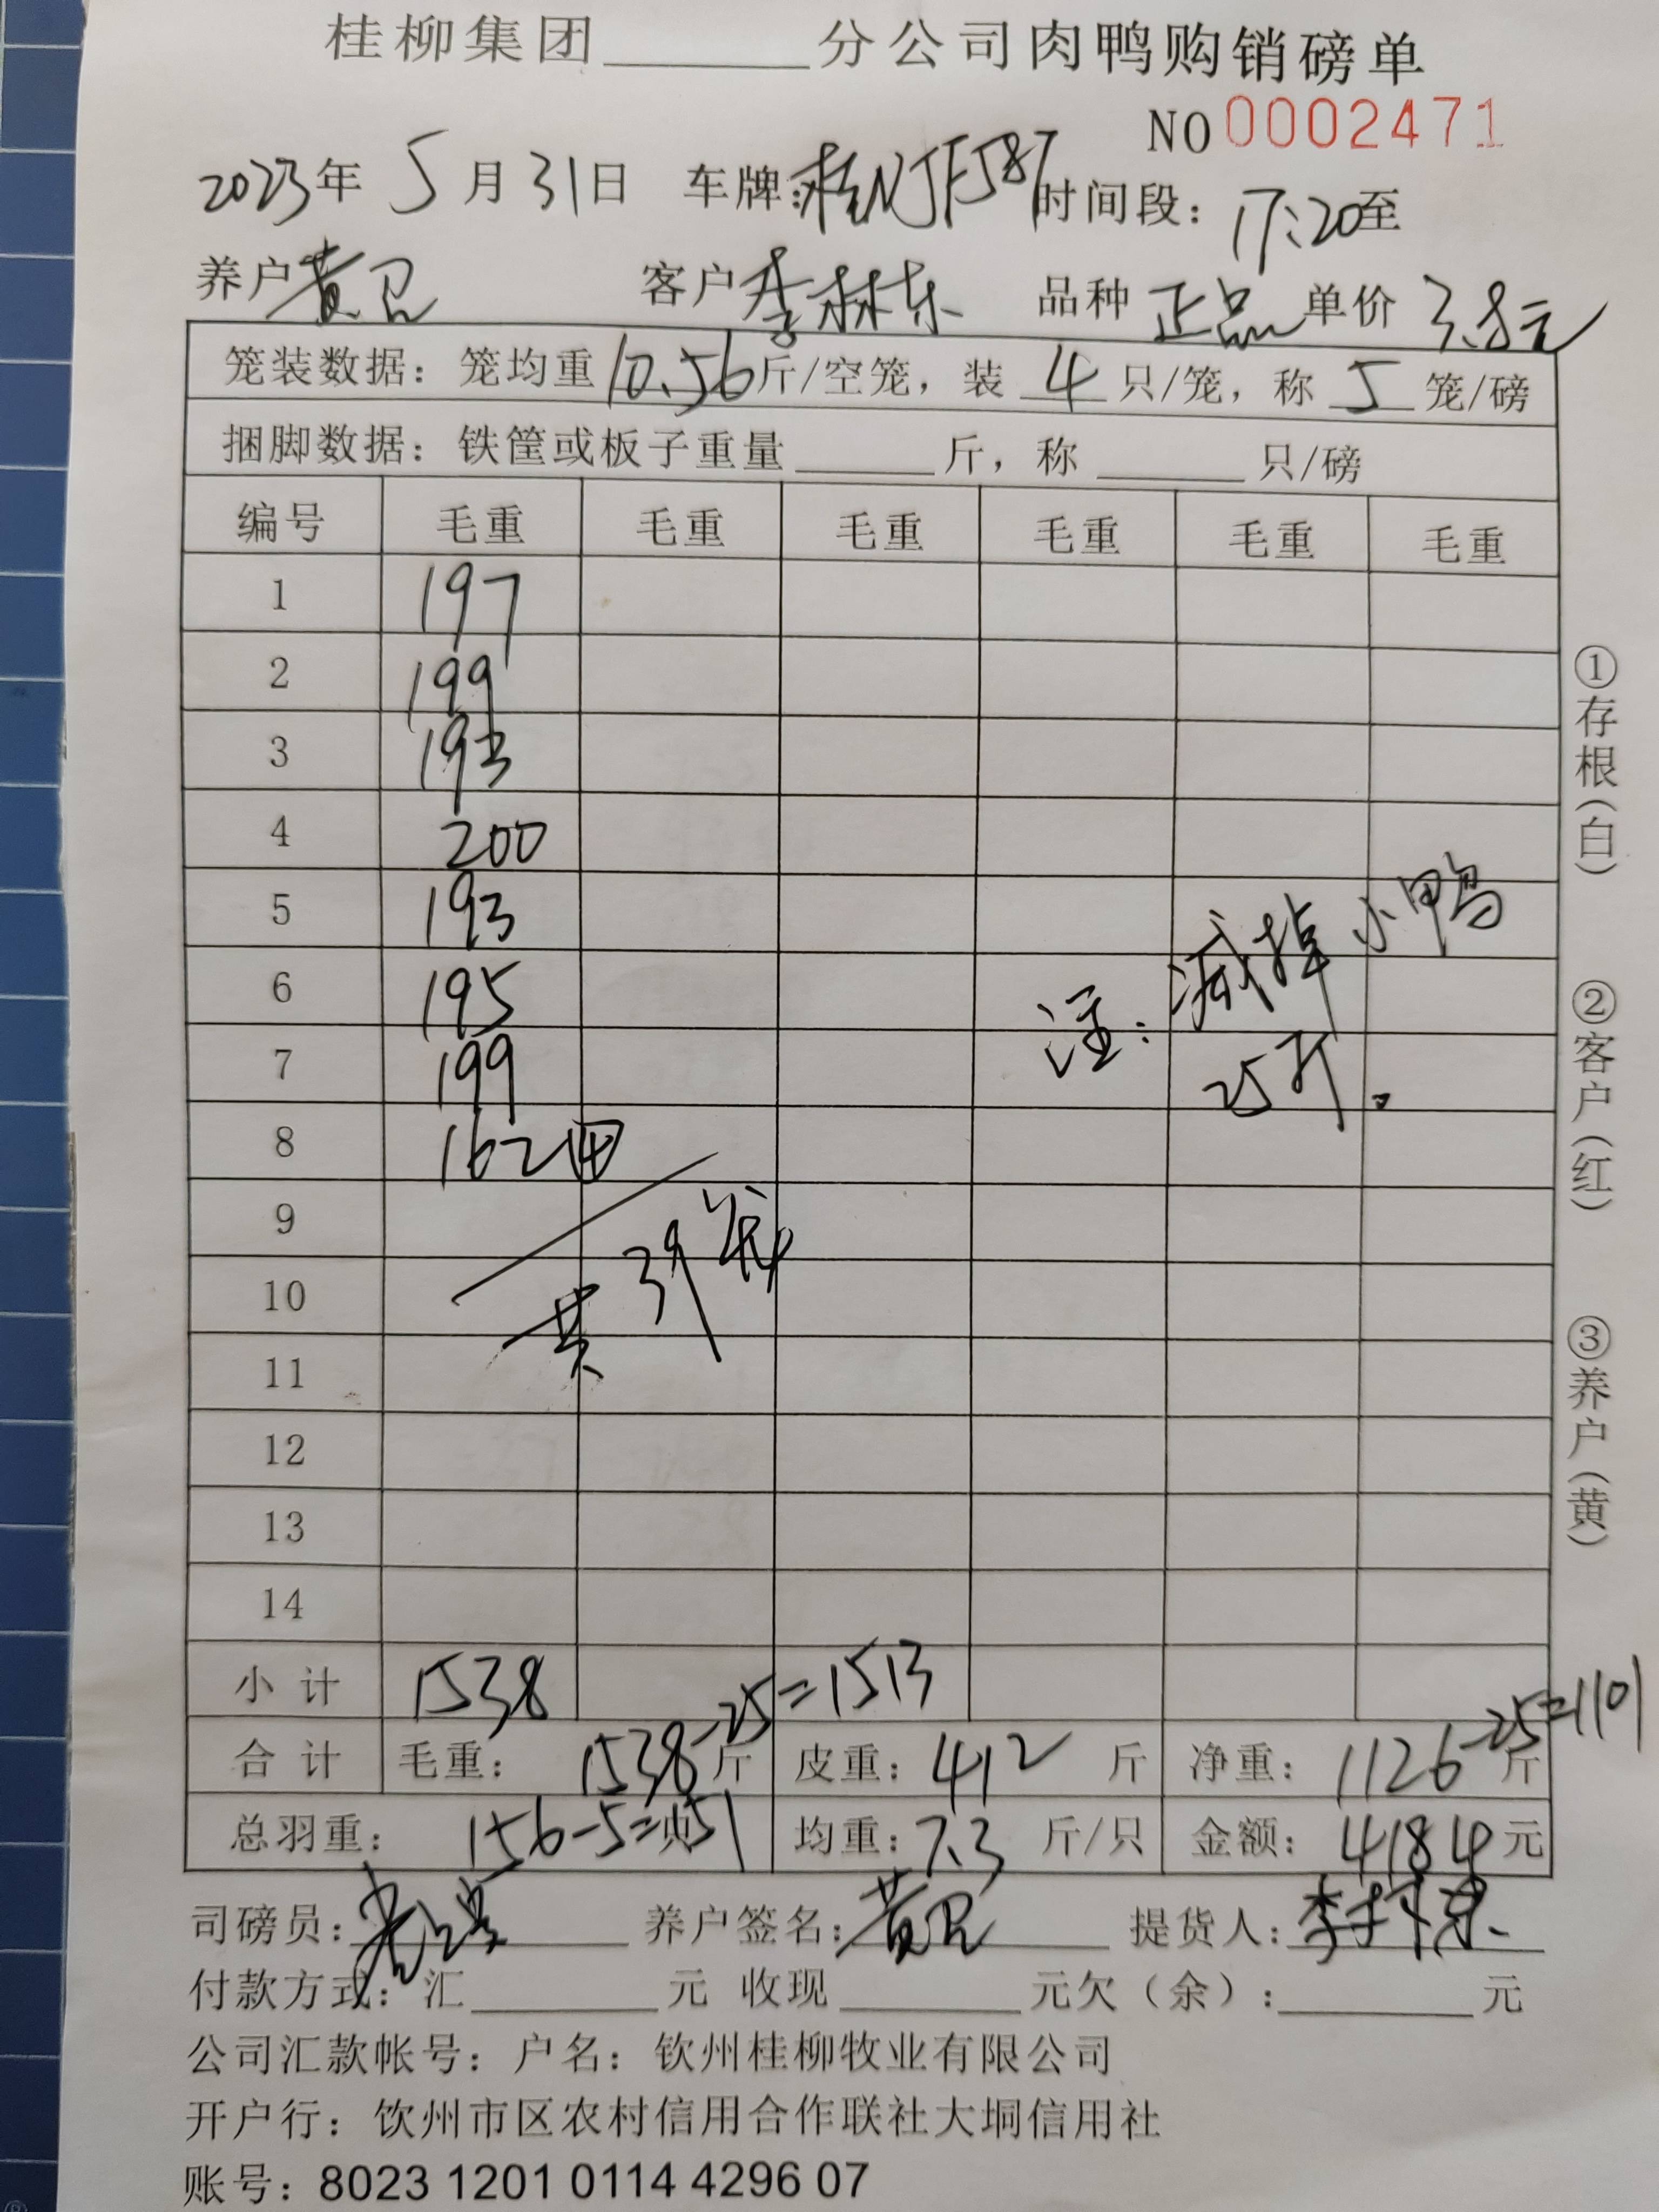 桂柳集团______分公司肉鸭购销磅单
NO 0002471
2023年 5月31日 车牌:桂NJF587 时间段: 17:20至
养户 黄卫 客户 李林东 品种 正品 单价 3.8元
笼装数据: 笼均重 10.56 斤/空笼, 装 4 只/笼, 称 5 笼/磅
捆脚数据: 铁筐或板子重量______斤, 称______只/磅
编号 毛重 毛重 毛重 毛重 毛重 毛重
1 197
2 199
3 193
4 200
5 193
6 195
7 199
8 162 ④
9
10
11
12
13
14
共39笼
注: 减掉小鸭
25斤。
小计 1538
合计 毛重: 1538-25=1513 斤 皮重: 412 斤 净重: 1126-25=1101 斤
总羽重: 156-5=151 均重: 7.3 斤/只 金额: 4184元
司磅员: 养户签名: 黄卫 提货人: 李林东
付款方式: 汇______元 收现______元欠(余):______元
公司汇款帐号: 户名: 钦州桂柳牧业有限公司
开户行: 钦州市区农村信用合作联社大垌信用社
账号: 8023 1201 0114 4296 07
①存根(白)
②客户(红)
③养户(黄)